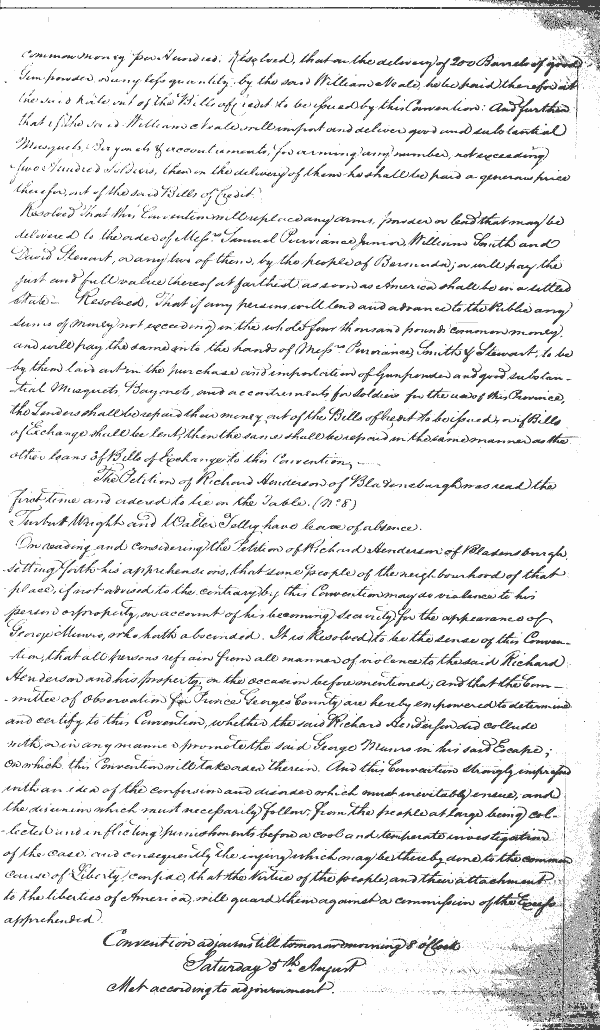 common money per Hundred. Resolved, that on the delivery of 200 Barrels of good
Gunpowder, or any less quantity, by the said William Neale, he be paid therefor at
the said Rate out of the Bills of Credit to be issued by this Convention: And further
that if the said William Neale, will import and deliver good and substantial
Musquets, Bayonets & accoutrements, for arming any number, not exceeding
five Hundred Soldiers, then on the delivery of them he shall be paid a generous price
therefor, out of the said Bills of Credit.
Resolved That this Convention will replace any arms, powder or lead that may be
delivered to the order of Messrs. Samuel Purviance Junior, William Smith and
David Stewart, or any two of them, by the people of Bermuda; or will pay the
just and full value thereof at farthest, as soon as America shall be in a settled
state — Resolved, That if any persons will lend and advance to the Public any
sums of money not exceeding in the whole four thousand pounds common money,
and will pay the same into the hands of Messrs. Purviance, Smith & Stewart, to be
by them laid out in the purchase and importation of Gunpowder and good substan-
tial Musquets, Bayonets, and accoutrements for Soldiers for the use of this Province,
the Lenders shall be repaid their money out of the Bills of Credit to be issued, or if Bills
of Exchange shall be lent, then the same shall be repaid in the same manner as the
other loans of Bills of Exchange to this Convention. —
The Petition of Richard Henderson of Bladensburgh was read the
first time and ordered to lie on the Table. (No. 8)
Turbutt Wright and Walter Tolley have leave of absence.
On reading and considering the Petition of Richard Henderson of Bladensburgh,
setting forth his apprehensions, that some people of the neighbourhood of that
place, if not advised to the contrary by this Convention may do violence to his
person or property, on account of his becoming security for the appearance of
George Munro, who hath absconded. It is Resolved to be the sense of this Conven-
tion, that all persons refrain from all manner of violence to the said Richard
Henderson and his property, on the occasion before mentioned; And that the Com-
mittee of Observation for Prince Georges County are hereby empowered to determine
and certify to this Convention, whether the said Richard Henderson did collude
with, or in any manner promote the said George Munro in his said Escape;
on which this Convention will take order therein. And this Convention strongly impressed
with an idea of the confusion and disorder which must inevitably ensue, and
the disunion which must necessarily follow, from the people at large being col-
lected and inflicting punishments before a cool and temperate investigation
of the case, and consequently the injury which may be thereby done to the common
cause of Liberty, confide, that the Virtue of the people, and their attachment
to the liberties of America, will guard them against a commission of the Excess
apprehended.
Convention adjourns till tomorrow morning 8 oClock
Saturday 5th. August
Met according to adjournment.